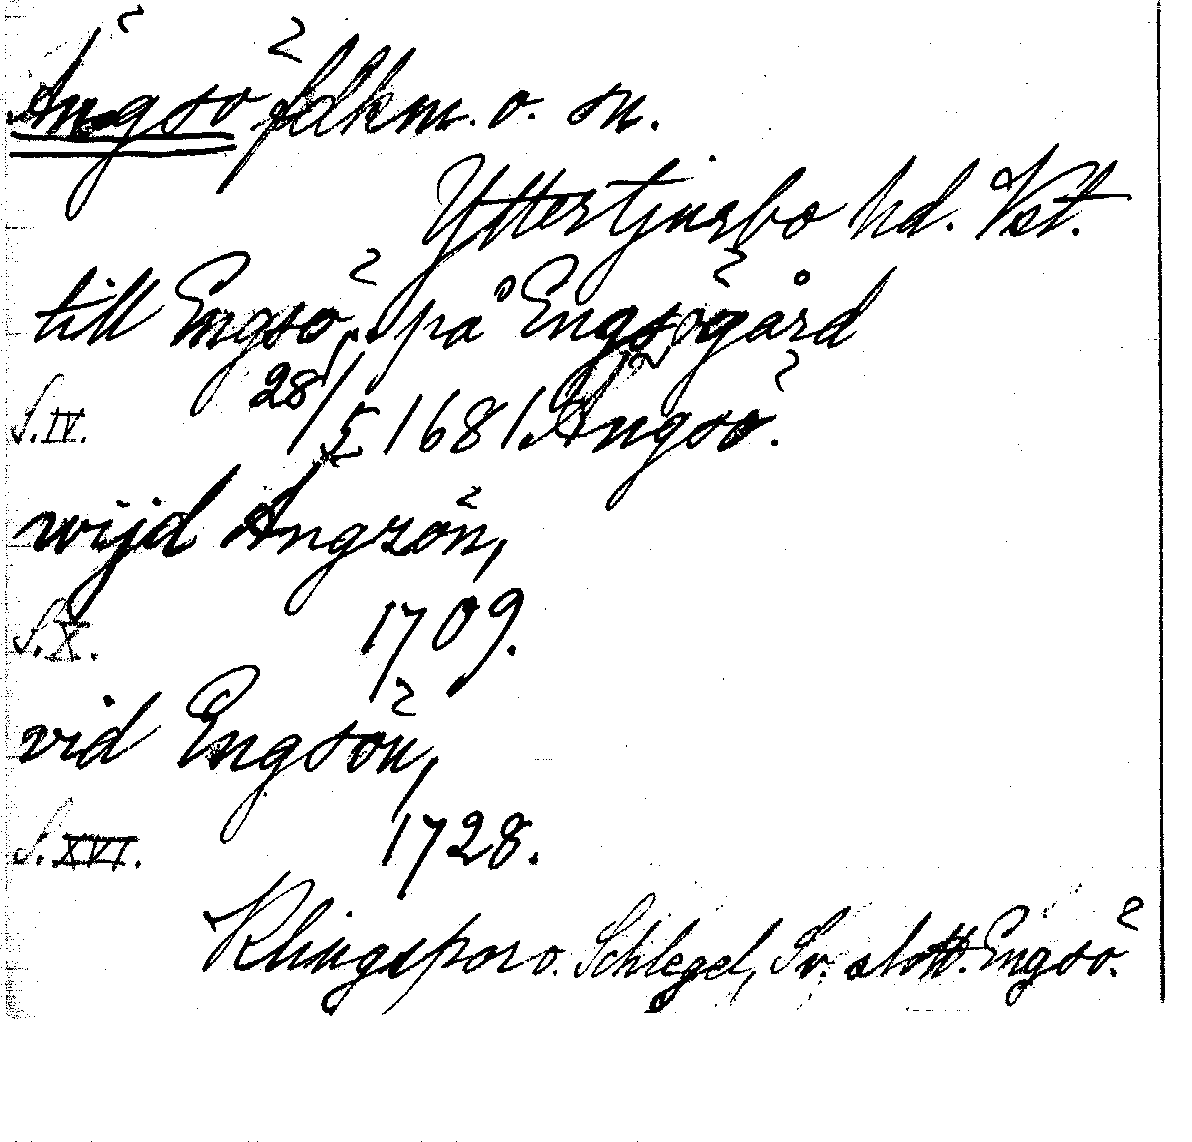 Ängsö fdkm. o. sn.
Yttertjurbo hd. Vst.
till Engsö, . . på Engsögård
S. IV. 28/5 1681. Ängsö.
wijd Ängzön,
S. X. 1709.
vid Engsön,
S. XVI. 1728.
Klingspor o. Schlegel, Sv. slott. Engsö.